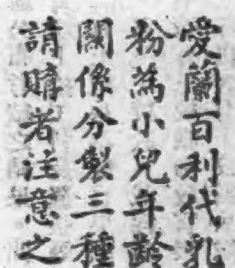 愛蘭百利代乳
粉為小兒年齡
關係分製三種
請購者注意之